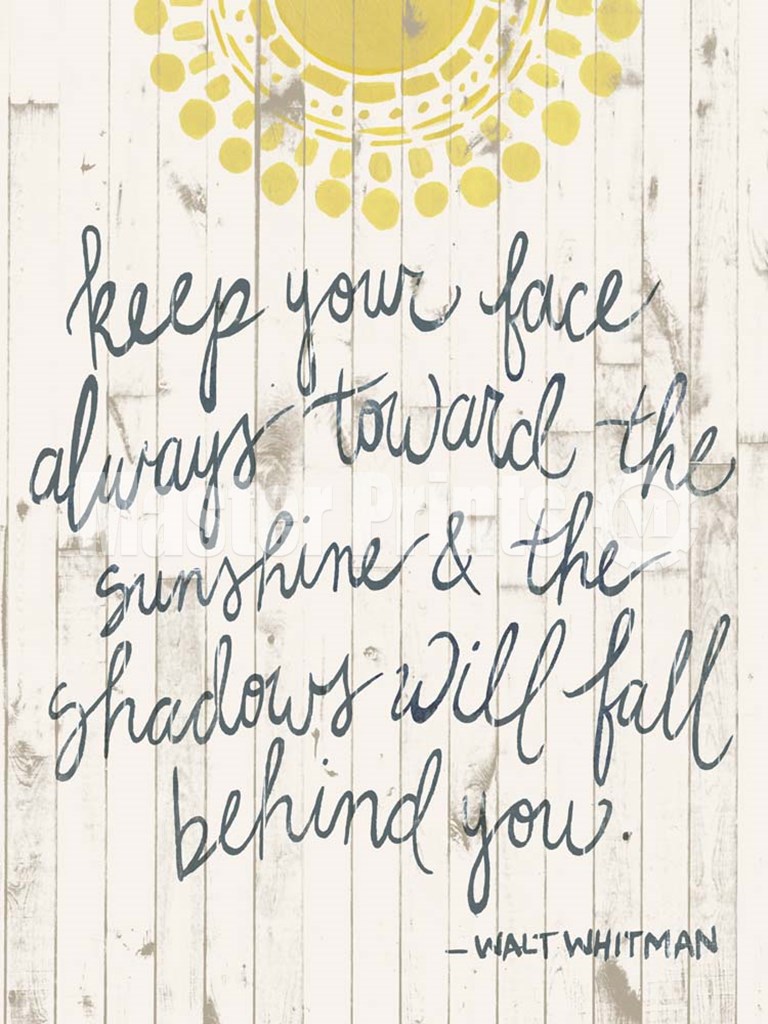 keep your face
always toward the
sunshine & the
Master Prints
shadows will fall
behind you.
—WALT WHITMAN